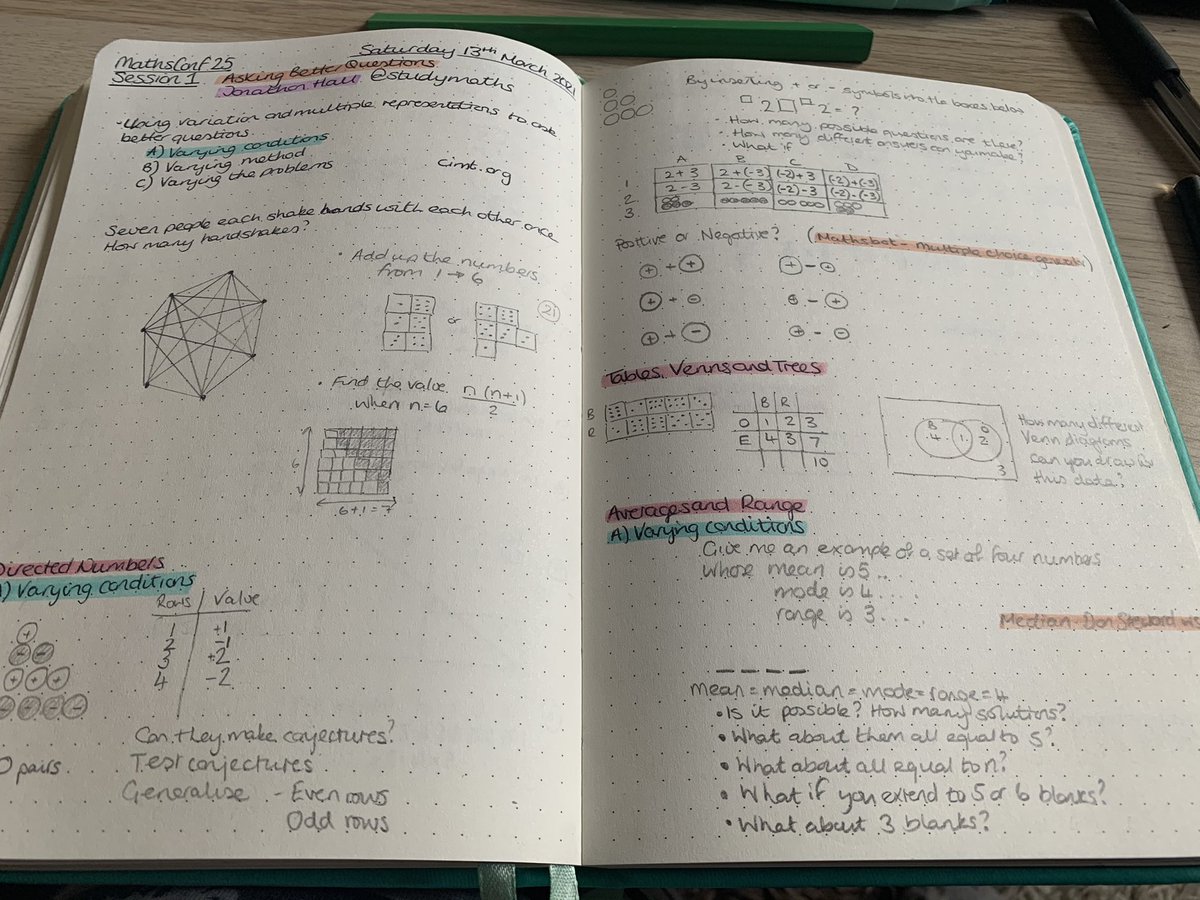 MathsConf25
Saturday 13th March 2021
Session 1 Asking Better Questions
Jonathon Hall @studymaths
• Using variation and multiple representations to ask
better questions.
A) Varying conditions
B) Varying method
C) Varying the problems
cimt.org
Seven people each shake hands with each other once
How many handshakes?
• Add up the numbers
from 1 → 6
or
21
• Find the value n(n+1)
2
when n=6
6
6+1=7
Directed Numbers
A) Varying conditions
Rows Value
1 +1
2 -1
3 +2
4 -2
Can they make conjectures?
0 pairs. Test conjectures
Generalise - Even rows
Odd rows
By inserting + or - symbols into the boxes below
□ 2 □ □ 2 = ?
• How many possible questions are there?
• How many different answers can you make?
• What if
A B C D
1. 2+3 2+(-3) (-2)+3 (-2)+(-3)
2. 2-3 2-(-3) (-2)-3 (-2)-(-3)
3.
Positive or Negative? (Mathsbot - multiple choice generator)
⊕ + ⊕ ⊕ - ⊖
⊕ + ⊖ ⊕ - ⊕
⊕ + ⊖ ⊕ - ⊖
Tables, Venns and Trees
B
R
B R
O 1 2 3
E 4 3 7
10
B O
4 1 2
3
How many different
Venn diagrams
can you draw for
this data?
Averages and Range
A) Varying conditions
Give me an example of a set of four numbers
whose mean is 5 ...
mode is 4 ....
range is 3 ...
Median - Don Steward
_ _ _ _
mean = median = mode = range = 4
• Is it possible? How many solutions?
• What about them all equal to 5?
• What about all equal to n?
• What if you extend to 5 or 6 blanks?
• What about 3 blanks?